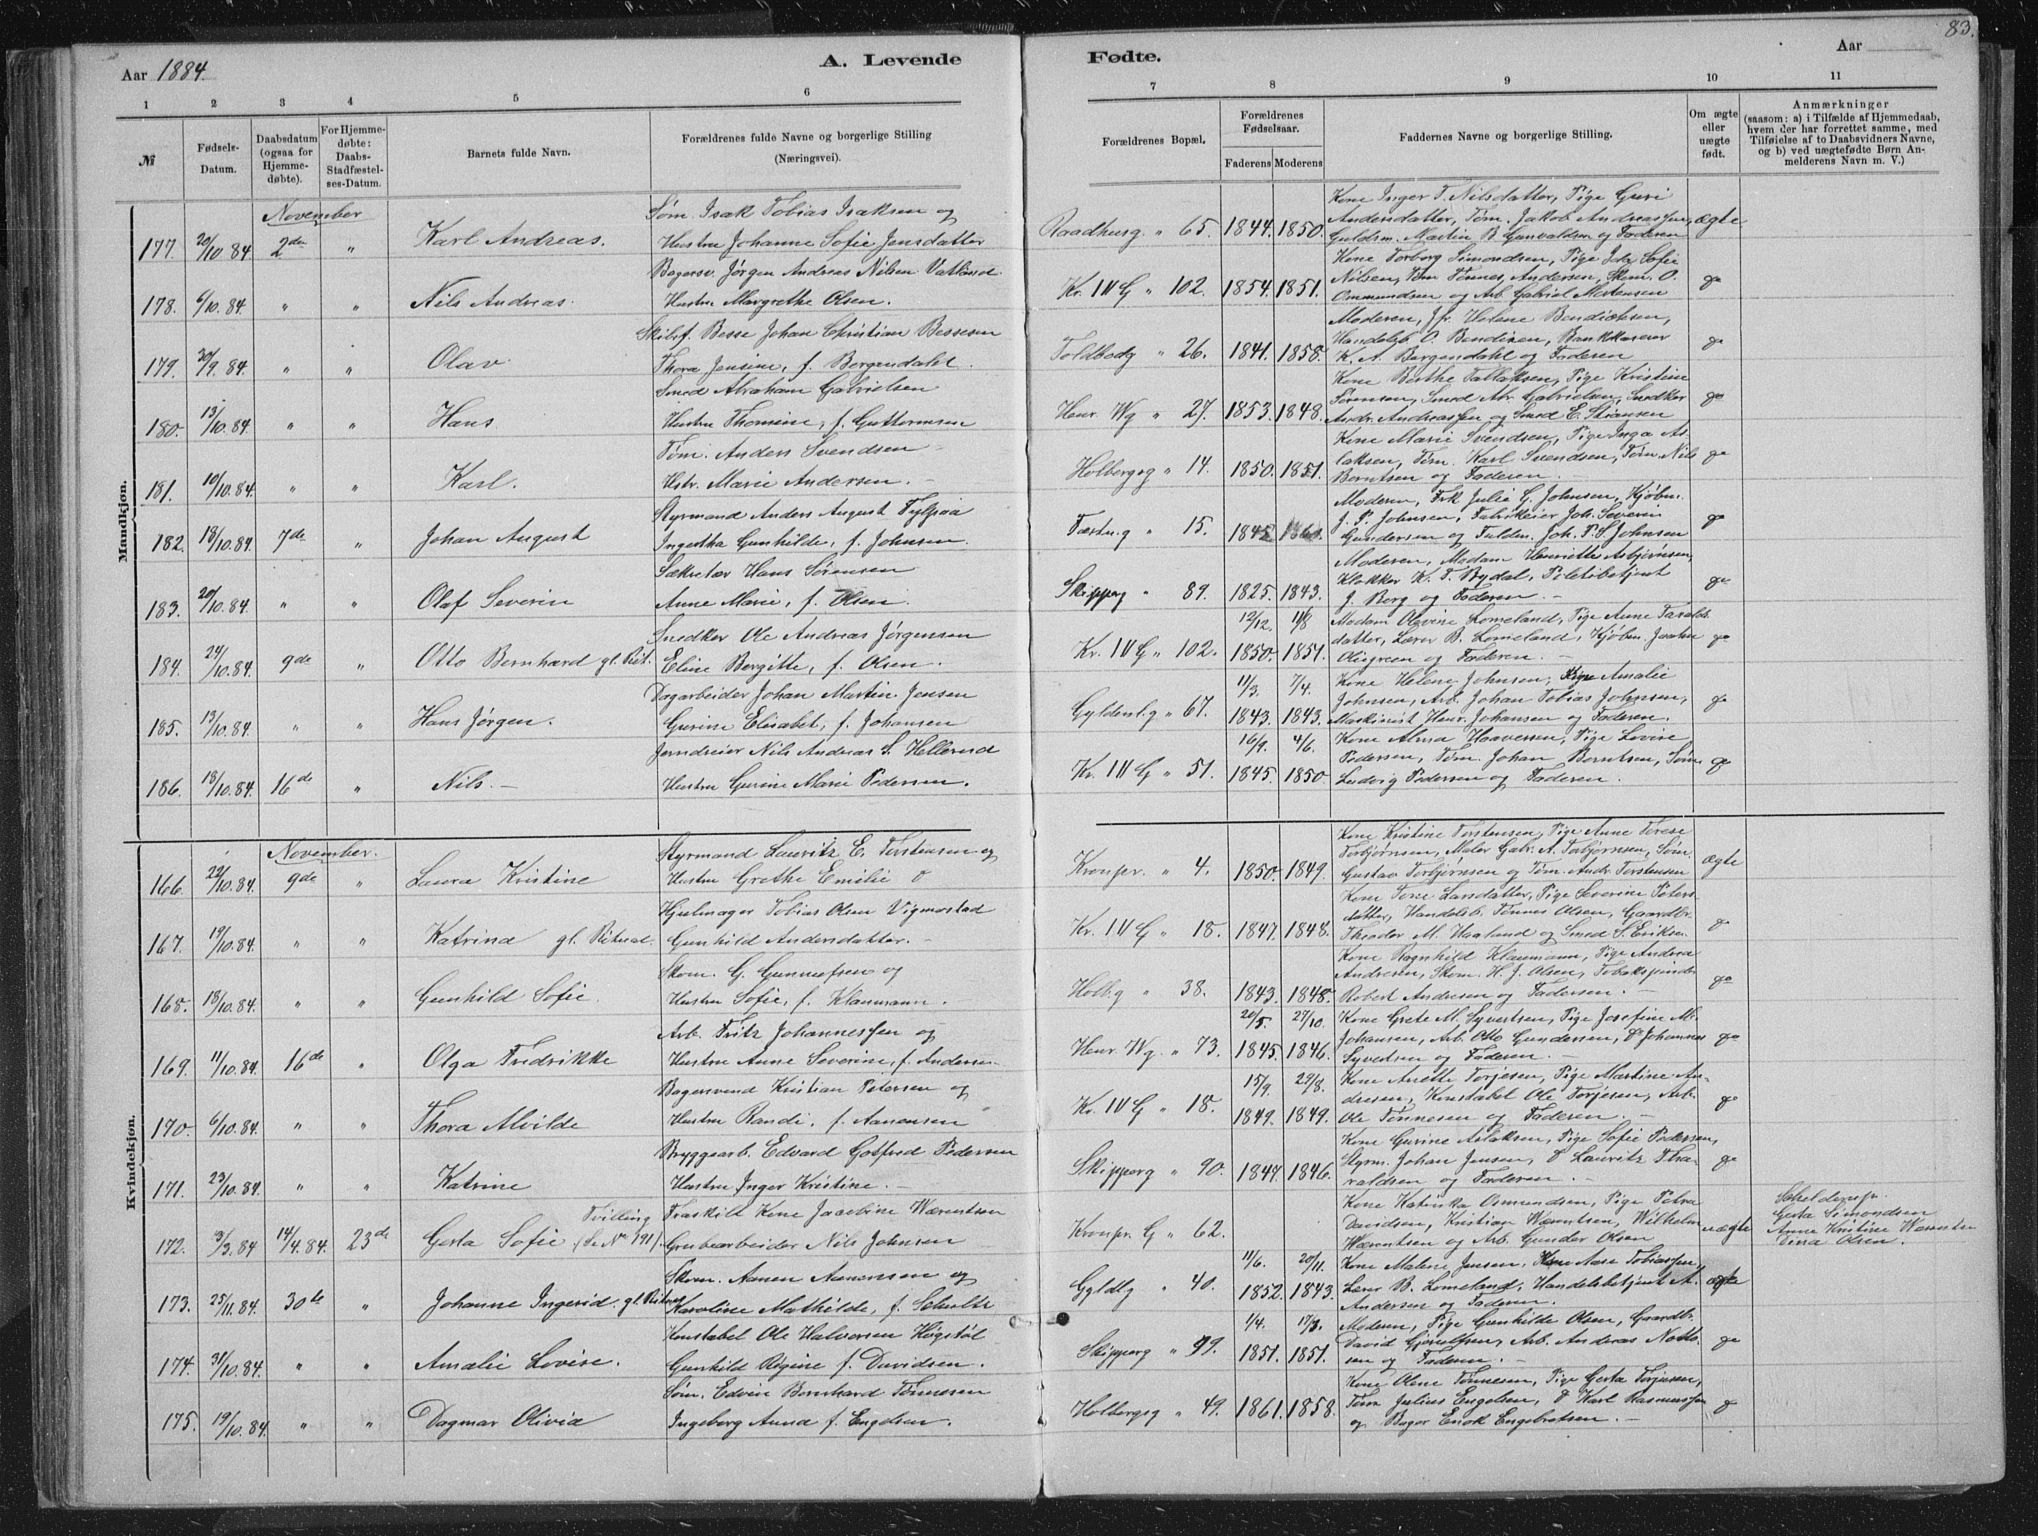 83.
Aar 1884.
A. Levende
Fødte.
Aar
1 2 3 4 5 6 7 8 9 10 11
№
Fødsels-
Datum.
Daabsdatum
(ogsaa for
Hjemme-
døbte).
For Hjemme-
døbte:
Daabs-
Stadfæstel-
ses-Datum.
Barnets fulde Navn.
Forældrenes fulde Navne og borgerlige Stilling
(Næringsvei).
Forældrenes Bopæl.
Forældrenes
Fødselsaar.
Faderens Moderens
Faddernes Navne og borgerlige Stilling.
Om ægte
eller
uægte
født.
Anmærkninger
(saasom: a) i Tilfælde af Hjemmedaab,
hvem der har forrettet samme, med
Tilføielse af to Daabsvidners Navne,
og b) ved uægtefødte Børn An-
melderens Navn m. V.)
Mandkjøn.
November
Søm. Isak Tobias Isaksen og
Kone Inger T. Nilsdatter, Pige Guri
Andersdatter, Tøm. Jakob Andreassen,
177. 20/10 84 2den " Karl Andreas. Hustru Johanne Sofie Jensdatter Raadhusg. " 65. 1844. 1850. Guldsm. Martin B. Gunvaldsen og Faderen ægte
Bagersv. Jørgen Andreas Nilsen Vatlmot
Kone Torborg Simondsen, Pige Sofie
Nilsen, Tøm Tønnes Andersen, Skom. O.
178. 6/10.84. " " Nils Andreas. Hustru Margrethe Olsen. Kr. IV G " 102. 1854. 1851. Ommundsen og Arb. Gabriel Mortensen
Skibsf. Besse Johan Christian Bessesen
Moderen, Jfr Helene Bendixsen,
Handelsb. O. Bendixen, Bankkasserer
179. 30/9.84. " " Olav Thora Jensine, f. Bergendahl. Toldbodg " 26. 1841. 1858. K. A. Bergendahl og Faderen
Smed Abraham Gabrielsen
Kone Berthe Tallaksen, Pige Kristine
Sørensen, Smed Abr. Gabrielsen, Snedker
180. 13/10.84. " " Hans Hustru Thomine, f. Guttormsen Henr. Wg " 27. 1853. 1848. Andr. Andreassen og Smed E. Stiansen
Tøm. Anders Svendsen
Kone Marie Svendsen, Pige Inga As-
laksen, Tøm. Karl Svendsen, Tøm. Nils
181. 10/10.84. " " Karl. Hstr. Marie Andersen. Holbergsg " 14. 1850. 1851. Berntsen og Faderen.
Styrmand Anders August
Moderen, Frk Julie G. Johnsen, Kjøbm.
J. P. Johnsen, Fabrikeier Joh. Severin
182. 18/10.84. 7de " Johan August Gunhilde, f. Johnsen. Fæstng " 15. Gundersen og Fuldm. Joh. P. S. Johnsen
Sekretær Hans Sørensen
Moderen, Madam Henriette Asbjørnsen,
Klokker K. T. Bydal, Politibetjent
183. 20/10.84. " " Olaf Severin Anne Marie, f. Olsen. Skipperg " 89. 1825. 1843. J. Berg og Faderen.
Snedker Ole Andreas Jørgensen
12/12. 11/8 Madam Olevine Lomeland, Pige Anne Taralds
datter, Lærer B. Lomeland, Kjøbm. Joachen
184. 24/10.84. 9de " Otto Bernhard gl. Rit. Eline Bergitte, f. Olsen. Kr. IV G " 102. 1850. 1854. Oligreen og Faderen.
Dagarbeider Johan Martin Jensen
11/3. 7/4. Kone Helene Johnsen, Pige Amalie
Johnsen, Arb. Johan Tobias Johnsen,
185. 13/10.84. " " Hans Jørgen. Gurine Elisabet, f. Johansen Gyldenl.g " 67. 1843. 1843. Maskinist Henr. Johansen og Faderen.
Jerndreier Nils Andreas S. Hellerud
16/9. 4/6. Kone Alma Haavessen, Pige Lovise
Pedersen, Tøm. Johan Berntsen, Søm
186. 18/10.84. 16de " Nils. Hustru Gurine Marie Pedersen. Kr. IV G " 51. 1845. 1850 Ludvig Pedersen og Faderen.
Kvindekjøn.
November.
Styrmand Lauritz E. Torstensen og
Kone Kristine Torstensen, Pige Anne Terese
Torbjørnsen, Maler Gabr. A. Torbjørnsen, Søm.
166. 22/10.84. 9de " Laura Kristine Hustru Grethe Emilie Kronpr. " 4. 1850. 1849. Gustav Torbjørnsen og Tøm. Andr. Torstensen ægte
Hjulmager Tobias Olsen Vigmostad
Kone Tone Larsdatter, Pige Severine Peters-
datter, Handelsb. Tønnes Olsen, Gaardbr.
167. 19/10.84. " " Katrina gl. Ritual. Gunhild Andersdatter. Kr. IV G " 18. 1847. 1848. Theodor M. Haaland og Smed S. Eriksen.
Skom. G. Gunnufsen og
Kone Ragnhild Klaumann, Pige Andrea
Andresen, Skom. H. J. Olsen, Tobakspinder
168. 18/10.84. " " Gunhild Sofie. Hustru Sofie, f. Klaumann. Holb.g " 38. 1843. 1848. Robert Andresen og Faderen.
Arb. Fritz Johannessen og
20/5. 27/10. Kone Grete M. Syvertsen, Pige Josefine M.
Johansen, Arb. Otto Gundersen, Do Johannes
169. 11/10.84. 16de " Olga Fredrikke Hustru Anne Severine, f. Andersen Henr. Wg. " 73. 1845. 1846. Syvertsen og Faderen.
Bagersvend Kristian Petersen og
15/9. 29/8. Kone Anette Torjesen, Pige Martine An-
dresen, Konstabel Ole Torjesen, Arb.
170. 6/10.84. " " Thora Alvilde Hustru Randi, f. Aanensen Kr. IV G " 18. 1849. 1849. Ole Tønnesen og Faderen.
Bryggearb. Edvard Gotfred Pedersen
Kone Gurine Aslaksen, Pige Sofie Pedersen,
Styrm. Johan Jensen, Do Lauritz Tha-
171. 23/10.84. " " Katrine Hustru Inger Kristine. Skipperg " 90. 1847. 1846. raldsen og Faderen.
Tvilling Fraskilt Kone Jacobine Wærentsen
Kone Katinka Osmundsen, Pige Petra
Davidsen, Kristian Wærentsen, Wilhelm
172. 3/3.84 14/4.84. 23de Gerta Sofie (Se No 191). Grubearbeider Nils Johnsen Kronpr. G " 62. Wærentsen og Arb. Gunder Olsen uægte
Gerta Simondsen
Anne Kristine Wærentsen
Olsen.
Skom. Aanen Aanensen og
11/6. 20/11. Kone Malene Jensen, Kone Aase Tobiassen,
Lærer B. Lomeland, Handelsbetjent A.
173. 25/11.84. 30te " Johanne Ingerid. gl. Ritual Karoline Mathilde, f. Schulti Gyldlg " 40. 1852. 1843. Andersen og Faderen. ægte
Konstabel Ole Halvorsen Høgstøl
1/4. 17/3. Moderen, Pige Gunhilde Olsen, Gaardbr.
David Gjørulfsen, Arb. Andreas Natte-
174. 31/10.84. " " Amalie Lovise. Gunhild Regine f. Davidsen. Skipperg " 99. 1851. 1851. sen og Faderen.
Søm. Edvin Bernhard Tønnesen
Kone Olene Tønnesen, Pige Gerta Torjusen,
Tøm Julius Engelsen, Do Karl Rasmussen
175. 19/10.84. " " Dagmar Olivia Ingeborg Anna f. Engelsen. Holbergsg " 49. 1861. 1858. og Bager Enok Engebretsen.